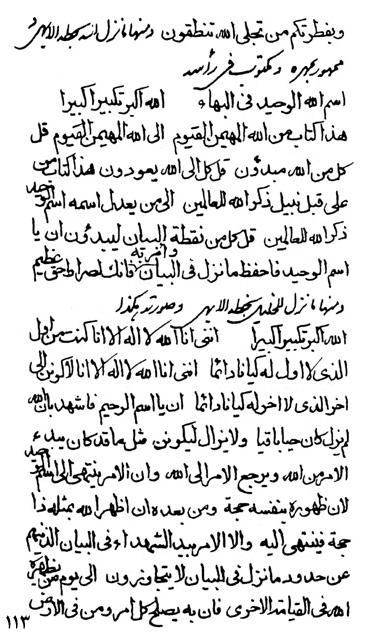 وبفطرتكم من تجلى الله تنطقون ومنها ما نزل اسمه بخطه الابهى
ممهور بمهره ومكتوب فى رأسه
اسم الله الوحيد فى البهاء الله اكبر تكبيرا كبيرا
هذا كتاب من الله المهيمن القيوم الى الله المهيمن القيوم قل
كل من الله مبدؤن قل كل الى الله يعودون هذا كتاب من
على قبل نبيل ذكر الله للعالمين الى من يعدل اسمه اسم الوحيد
ذكر الله للعالمين قل كل من نقطة البيان ليبدؤن ان يا
اسم الوحيد فاحفظ ما نزل فى البيان وأمر به فانك لصراط حق عظيم
ومنها ما نزل بخطه الابهى وصورته هكذا
الله اكبر تكبيرا كبيرا اننى انا الله لا اله الا انا كنت من اول
الذى لا اول له كيانا دائما اننى انا الله لا اله الا انا لاكونن الى
اخر الذى لا اخر له كيانا دائما ان يا اسم الرحيم فاشهد بان الله
لم يزل كان حيا باقيا ولا يزال ليكونن مثل ما قد كان يبدء
الامر من الله ويرجع الامر الى الله وان الامر ينتهى الى اسم الوحيد
لان ظهوره بنفسه حجة ومن بعده ان اظهر الله بمثله ذا
حجة فينتهى اليه والا الامر بيد الشهداء فى البيان الذينهم
عن حدود ما نزل فى البيان لا يتجاوزون الى يوم من يظهره
الله فى القيامة الاخرى فان به يصلح كل امر ومن فى الارض
١١٣